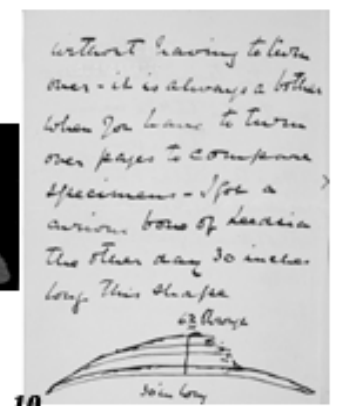 without having to turn
over - it is always a bother
when you have to turn
over pages to compare
specimens - I got a
curious bone of Leedsia
the other day 30 inches
long. This shape
through
30 in long
10